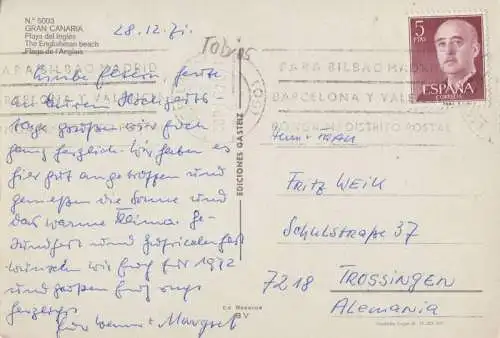 N.° 5003
GRAN CANARIA
Playa del Inglés
The Englishman beach
Plage de l'Anglais
28.12.71.
Tobias
Liebe Eltern, heute
an Eurem Hochzeits-
tage grüßen wir Euch
ganz herzlich. Wir haben es
hier gut angetroffen und
genießen die Sonne und
das warme Klima. Ge-
sundheit und Zufriedenheit
wünschen wir Euch für 1972
und grüßen Euch
herzlichst
Eure + Margret
EDICIONES GASTEIZ
B V
PARA BILBAO MADRID
BARCELONA Y VALENCIA
PONGA EL DISTRITO POSTAL
5
PTAS
ESPAÑA
CORREOS
Herrn + FRAU
FRITZ WEIK
SCHULSTRAßE 37
7218 TROSSINGEN
Alemania